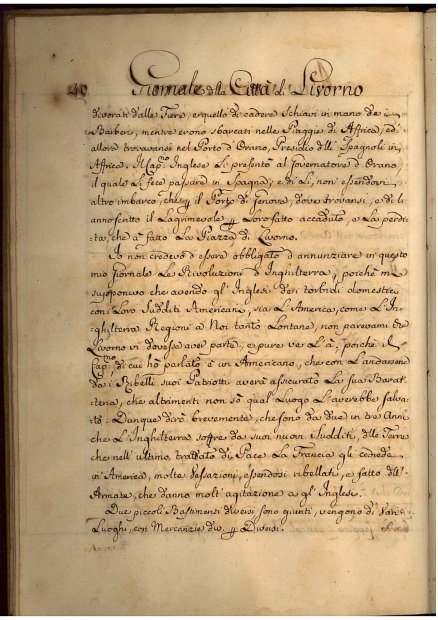 40 Giornale della Città di Livorno
divorati dalle Fiere, e quello di cadere schiavi in mano de i
Barberi, mentre erono sbarcati nelle Piaggie di Affrica, ed
allora trovavansi nel Porto d'Orano, Presidio dell' Spagnoli in
Affrica. Il Cap.º Inglese li presentò al Governatore d'Orano,
il quale li fece passare in Spagna, e di Lì, non essendovi
altro imbarco, che il Porto di Genova, dove trovansi, e di lì
anno scritto il Lagrimevole Loro fatto accaduto, e La perdi-
ta, che à fatto La Piazza di Livorno.
Io non credevo d'essere obbligato d'annunziare in questo
mio Giornale Le Rivoluzioni d'Inghilterra, poichè mi
supponevo che avendo gl' Inglesi de i torbidi domestici
con i Loro Sudditi Americani, sia L'America, come L'In-
ghilterra Regioni a Noi tanto Lontane, non parevami che
Livorno vi dovesse aver parte, e pure ve L'à, poichè il
Cap.no, di cui hò parlato è un Americano, che con L'andarsene
da i Ribelli suoi Patriotti averà assicurato La sua Barat-
teria, che altrimenti non so qual Luogo L'averebbe salva-
to. Dunque dirò brevemente, che sono da due in tre Anni
che L'Inghilterra soffre da suoi nuovi Sudditi, delle Terre
che nell'ultimo trattato di Pace La Francia gli cedè
in America, molte Vessazioni, essendosi ribellati, e fatto dell'
Armate, che danno molt' agitazione a gl' Inglesi.
Due piccoli Bastimenti sono giunti, vengono di Varii
Luoghi, con Mercanzie Diversi.